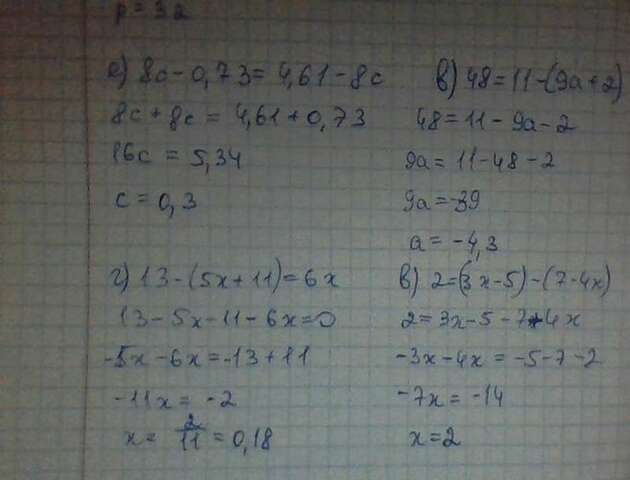 p = 32
е) 8c - 0,73 = 4,61 - 8c
8c + 8c = 4,61 + 0,73
16c = 5,34
c = 0,3
в) 48 = 11 - (9a + 2)
48 = 11 - 9a - 2
9a = 11 - 48 - 2
9a = -39
a = -4,3
г) 13 - (5x + 11) = 6x
13 - 5x - 11 - 6x = 0
-5x - 6x = -13 + 11
-11x = -2
x = 2/11 = 0,18
в) 2 = (3x - 5) - (7 - 4x)
2 = 3x - 5 - 7 + 4x
-3x - 4x = -5 - 7 - 2
-7x = -14
x = 2